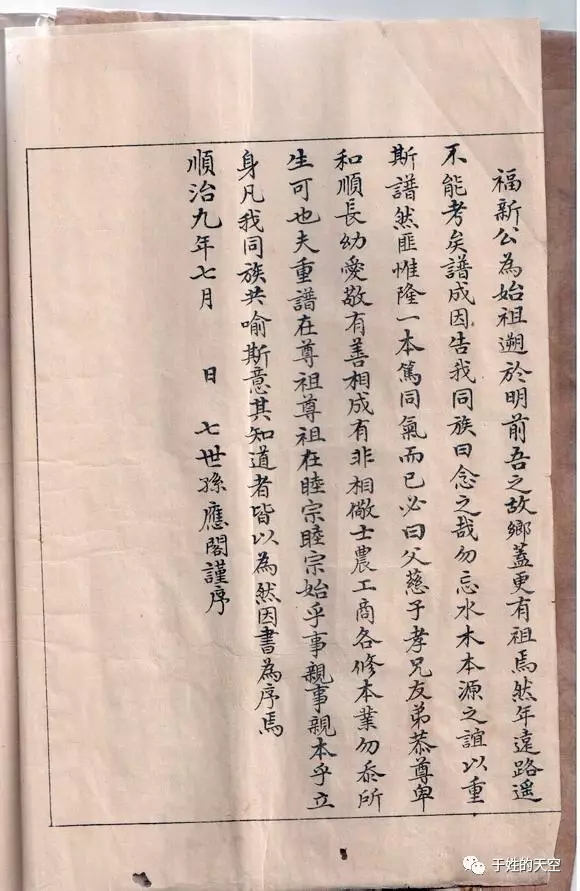 福新公為始祖遡於明前吾之故鄉蓋更有祖焉然年遠路遥
不能考矣譜成因告我同族曰念之哉勿忘水木本源之誼以重
斯譜然匪惟隆一本篤同氣而已必曰父慈子孝兄友弟恭尊卑
和順長幼愛敬有善相成有非相儆士農工商各修本業勿忝所
生可也夫重譜在尊祖尊祖在睦宗睦宗始乎事親事親本乎立
身凡我同族共喻斯意其知道者皆以為然因書為序焉
順治九年七月　日　七世孫應閣謹序
于姓的天空